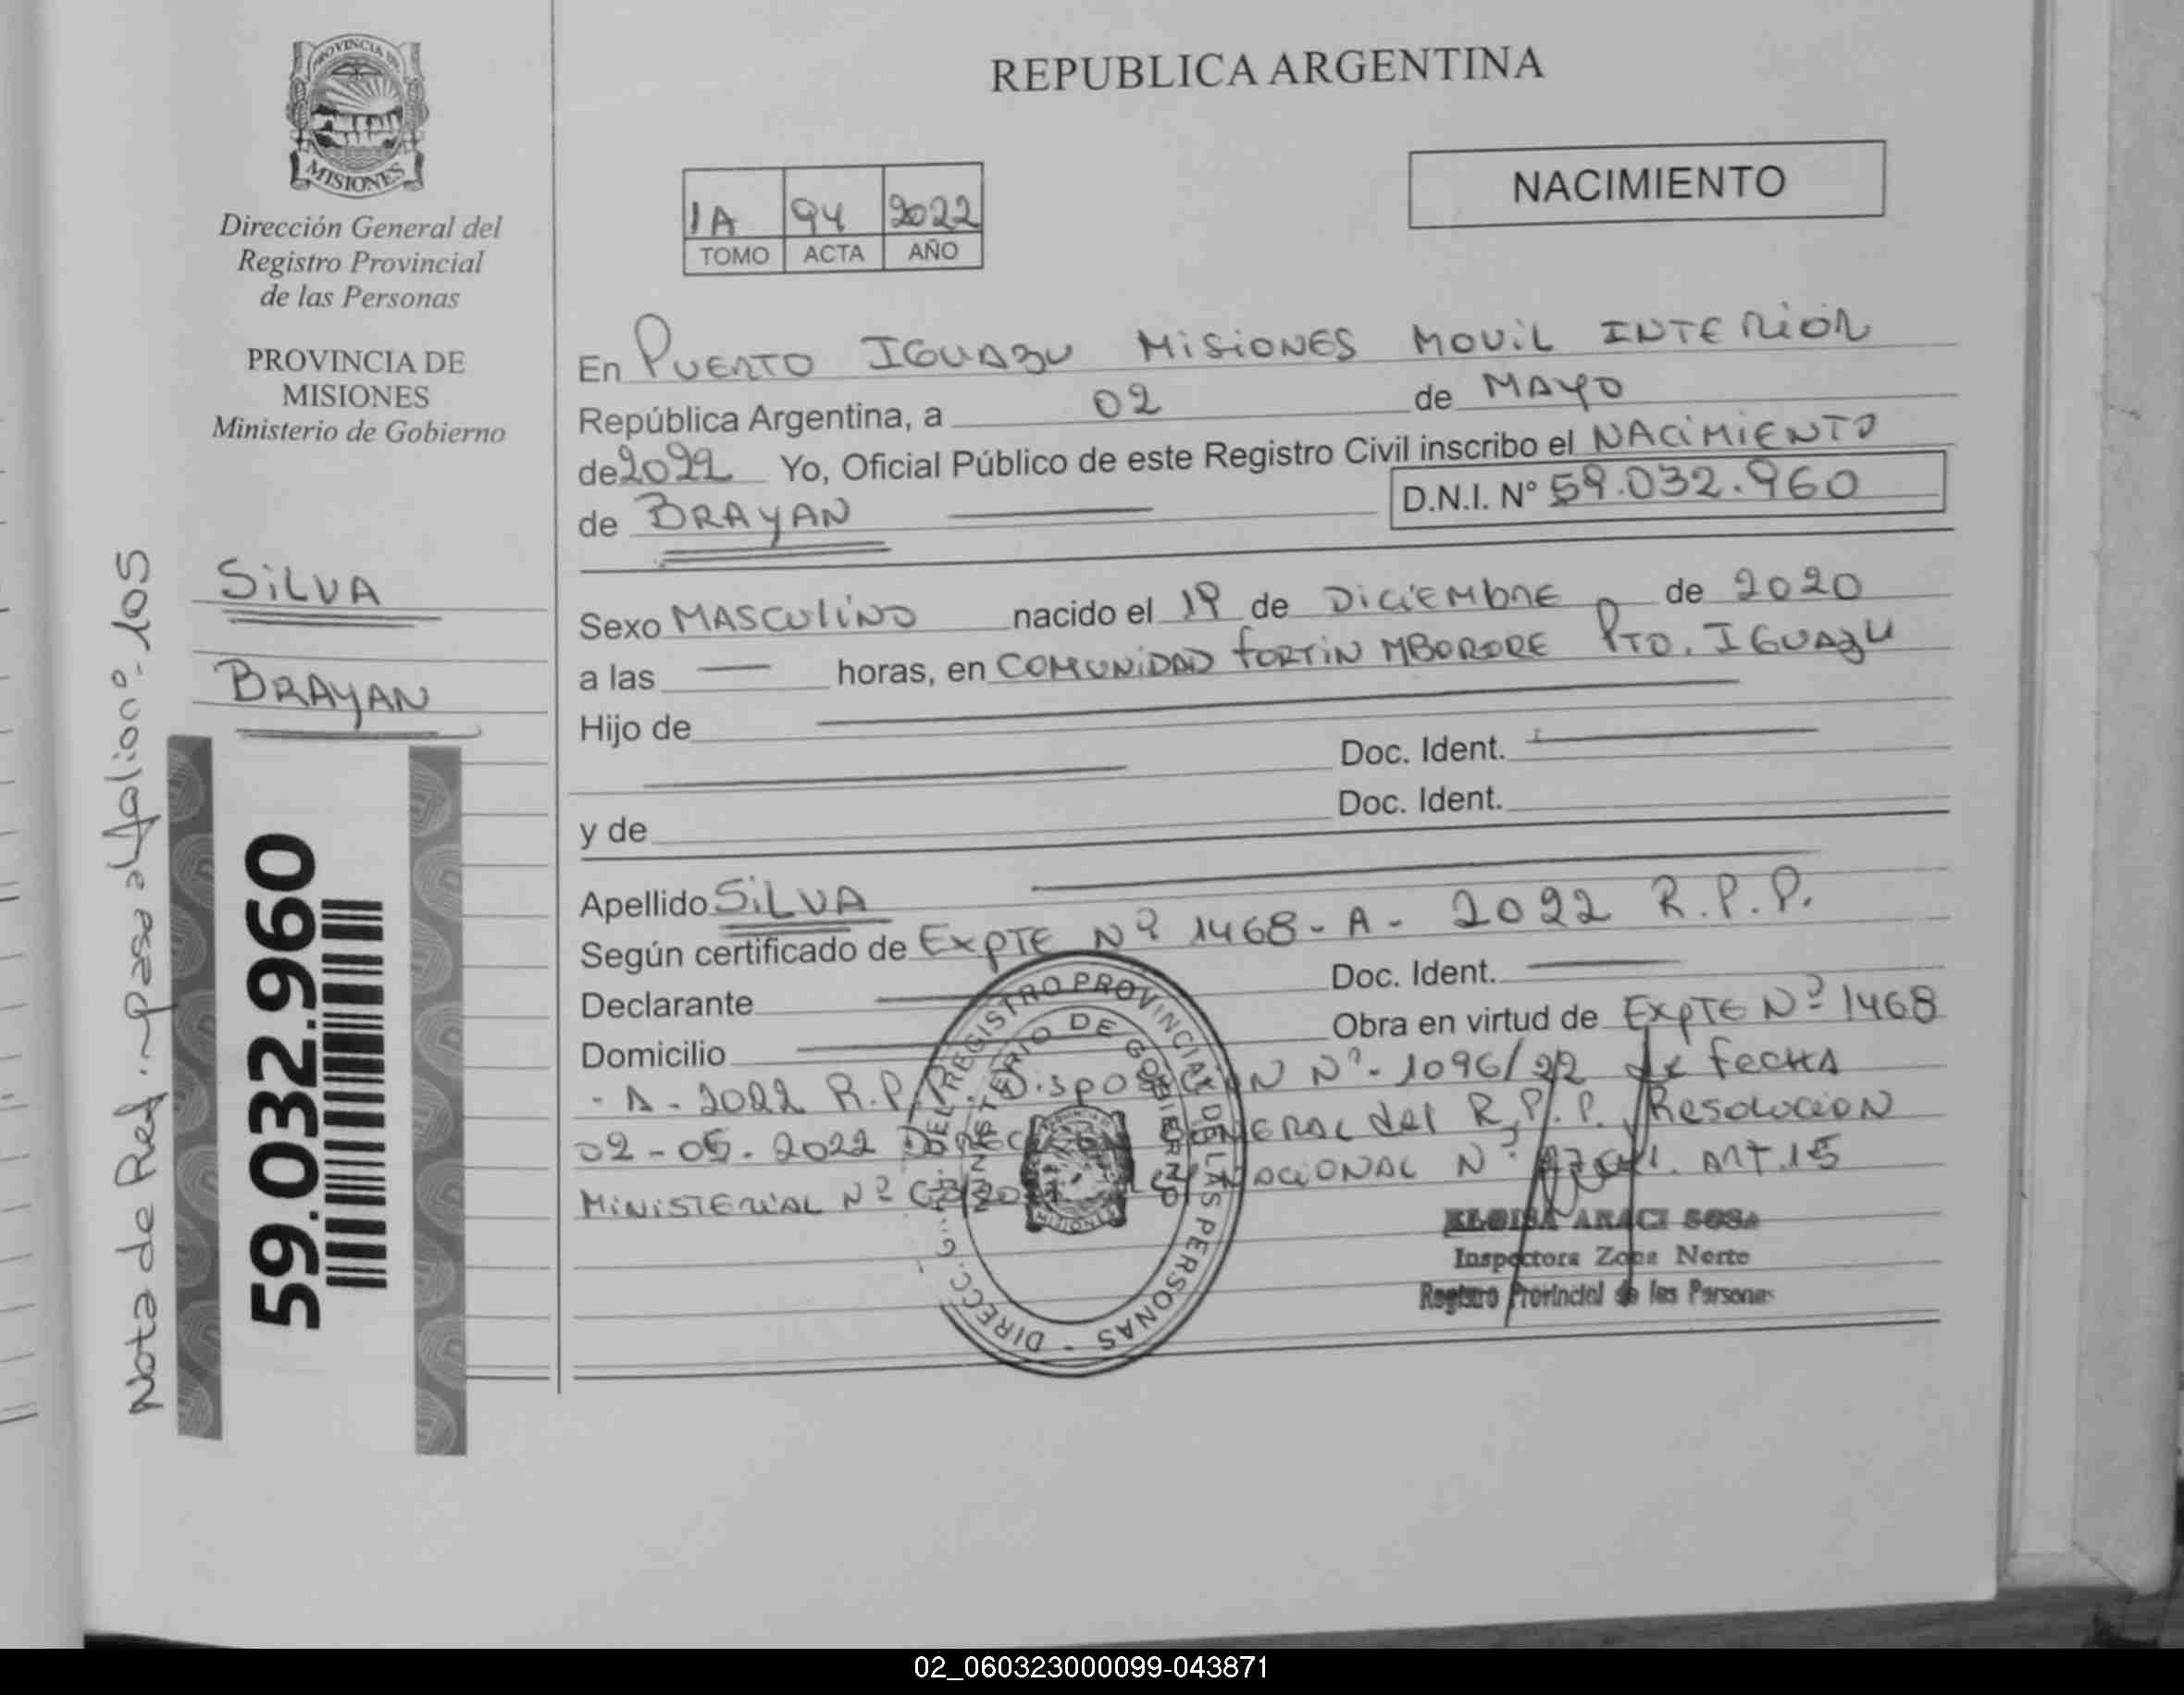 PROVINCIA DE
MISIONES
Dirección General del
Registro Provincial
de las Personas
PROVINCIA DE
MISIONES
Ministerio de Gobierno
SILVA
BRAYAN
59.032.960
Nota de Ref.: Pasa al folio nº. 105
REPUBLICA ARGENTINA
NACIMIENTO
1A 94 2022
TOMO ACTA AÑO
En PUERTO IGUAZU MISIONES MOVIL INTERIOR
República Argentina, a 02 de MAYO
de 2022 Yo, Oficial Público de este Registro Civil inscribo el NACIMIENTO
de BRAYAN D.N.I. Nº 59.032.960
Sexo MASCULINO nacido el 19 de DICIEMBRE de 2020
a las — horas, en COMUNIDAD FORTIN MBORORE PTO. IGUAZU
Hijo de
Doc. Ident.
y de Doc. Ident.
Apellido SILVA
Según certificado de EXPTE Nº 1468-A-2022 R.P.P.
Declarante Doc. Ident.
Domicilio Obra en virtud de EXPTE Nº 1468
-A-2022 R.P.P. DISPOSICION Nº-1096/22 de FECHA
02-05-2022 DIRECCION GENERAL del R.P.P. RESOLUCION
MINISTERIAL Nº NACIONAL Nº ART.15
DIRECC. GRAL. DEL REGISTRO PROVINCIAL DE LAS PERSONAS
MINISTERIO DE GOBIERNO
MISIONES
ELOISA ARACI SOSA
Inspectora Zona Norte
Registro Provincial de las Personas
02_060323000099-043871